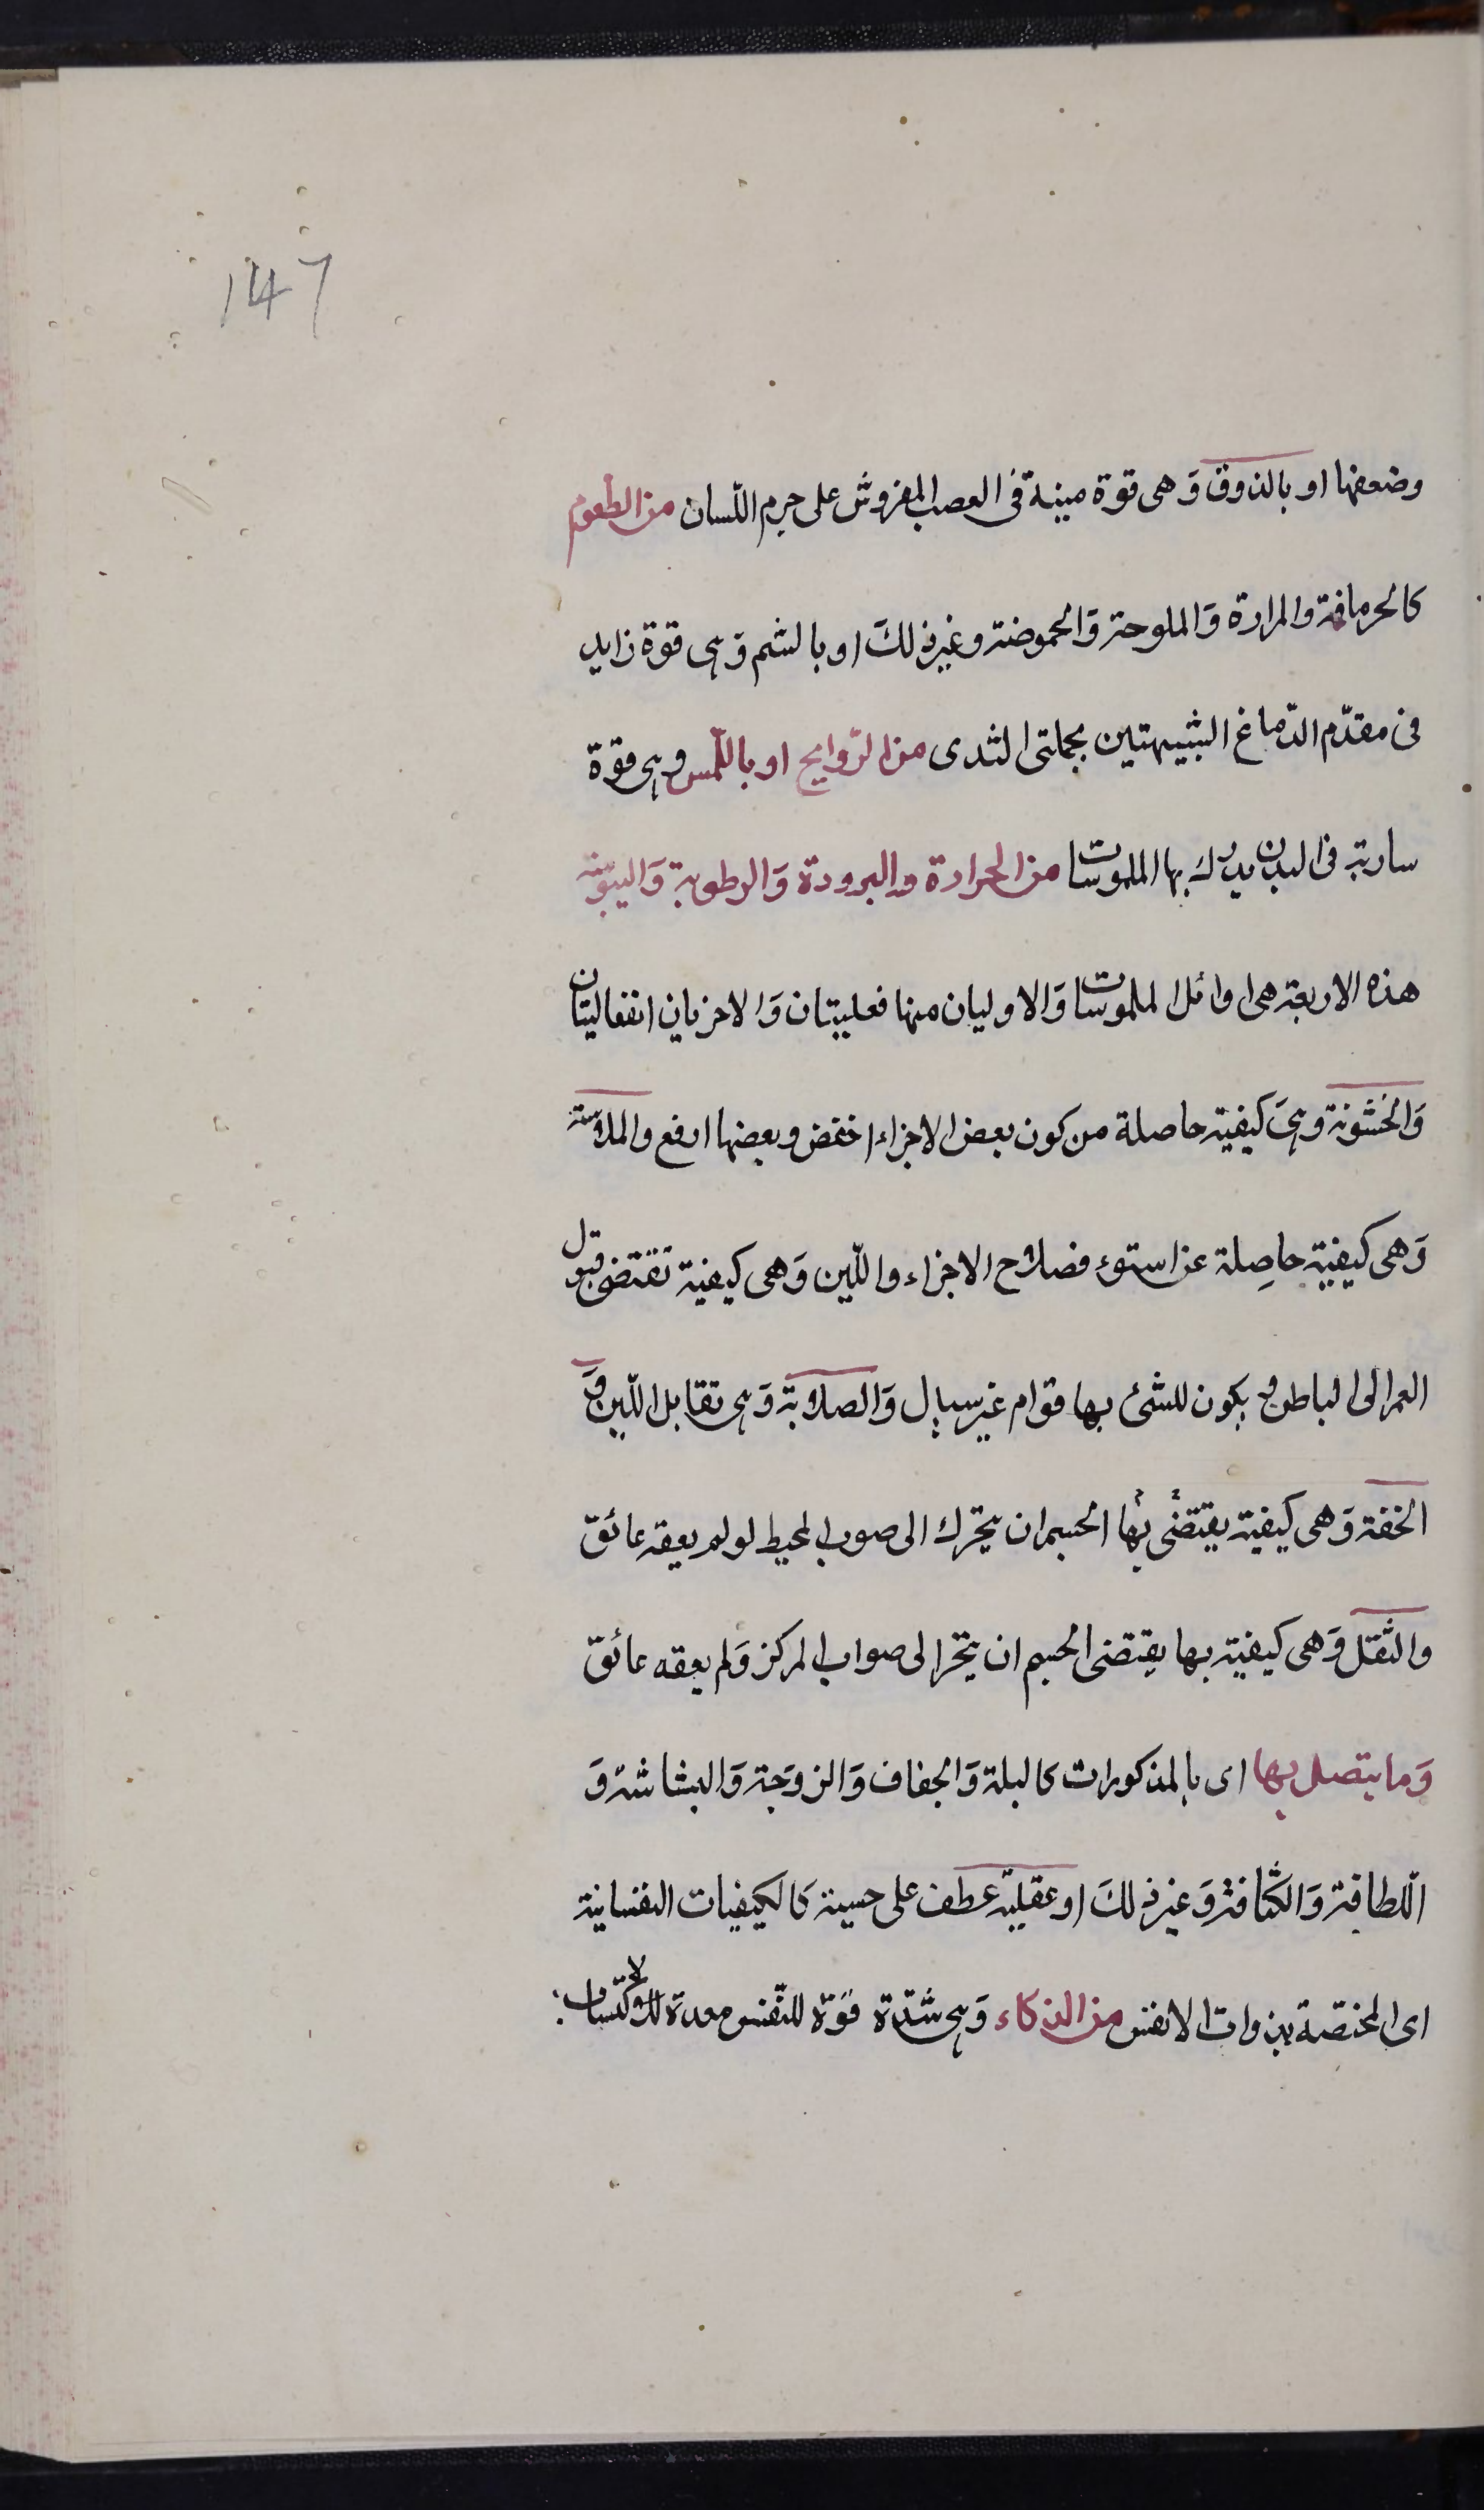 147
وضعفها او بالذوق وَهى قوة مبنية فى العصب المفروش على جرم اللسان من الطعوم
كالحرمافة والمرارة وَالملوحة وَالحموضة وغيرذلكَ او بالشم وَهى قوة زايد
فى مقدّم الدّماغ الشبيهتين بجلمتى الثدى من الرّوايح او باللّمس وهى قوة
سارية فى البدن يدرك بها الملموسات من الحرارة والبرودة وَالرطوبة وَاليبوسة
هذه الاربعة هى اوائل الملموسات وَالاوليان منها فعليتان وَالاخريان انفعاليتان
وَالخشونة وهىَ كيفية حاصلة من كون بعض الاجزاء اخفض وبعضها ارفع والملاسة
وَهى كيفية حاصِلة عن استوء فصلاح الاجزاء واللّين وَهى كيفية تقتضى قبول
الغمر الى الباطن ويكون للشئ بها قوام غير سيال وَالصلابة وَهى تقابل اللّين وَ
الخفة وَهى كيفية يقتضى بها الجسم ان يتحرك الى صوب المحيط لو لم يعقه عائق
والثقل وَهى كيفية بها يقتضى الجسم ان يتحرا لى صواب المركز وَلم يعقه عائق
وَما يتصل بها اى بالمذكورات كالبلة وَالجفاف وَالزوجَة وَالبشاشة وَ
اللّطافة وَالكثافة وَغير ذلكَ او عقليّة عطف على حسية كالكيفيات النفسانية
اى المختصّة بذوات الانفس من الذكاء وَهى شدّة قوّة للنّفس معدة لاكتساب